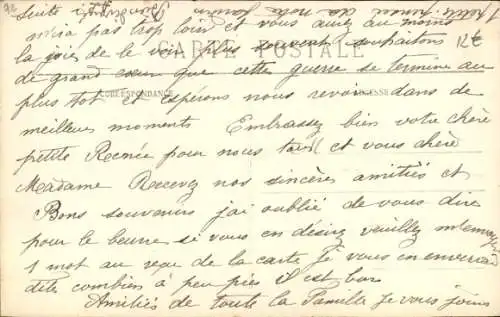 suite
n'ira pas trop loin et vous aurez au moins
la joie de le voir plus souvent souhaitons
CARTE POSTALE
12€
de grand cœur que cette guerre se termine au
CORRESPONDANCE
plus tot et espérons nous revoir dans de
meilleurs moments Embrassez bien votre chère
petite Renée pour nous tous et vous chère
Madame Recevez nos sincères amitiés et
Bons souvenirs j'ai oublié de vous dire
pour le beurre si vous en désirez veuillez
1 mot au reçu de la carte Je vous en enverrai
dite combien à peu près il est bon
Amitiés de toute la Famille Je vous joins